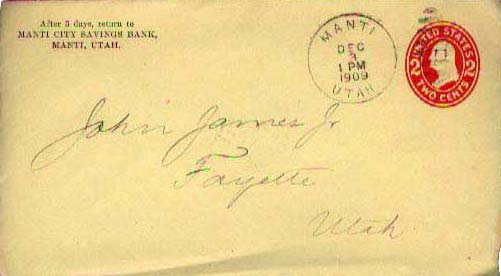 After 5 days, return to
MANTI CITY SAVINGS BANK,
MANTI, UTAH.
MANTI
DEC
1 PM
1909
UTAH
UNITED STATES
2 2
TWO CENTS
John James Jr
Fayette
Utah.